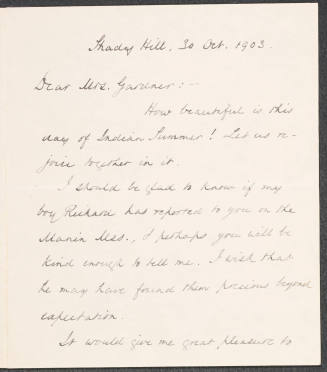 Shady Hill, 30 Oct. 1903.
Dear Mrs. Gardner:--
How beautiful is this
day of Indian Summer! Let us re-
joice together in it.
I should be glad to know if my
boy Richard has reported to you on the
Manin Mss., & perhaps you will be
kind enough to tell me. I wish that
he may have found them precious beyond
expectation.
It would give me great pleasure to